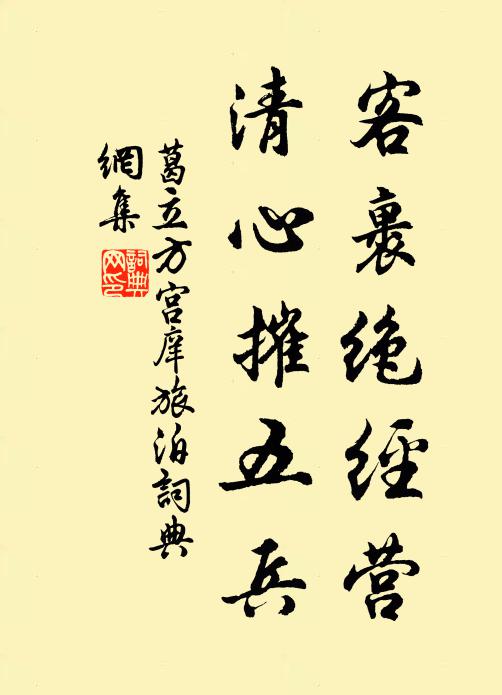 客裹绝經营
清心摧五兵
葛立方宫庠旅泊詞典
網集
詞典
网印